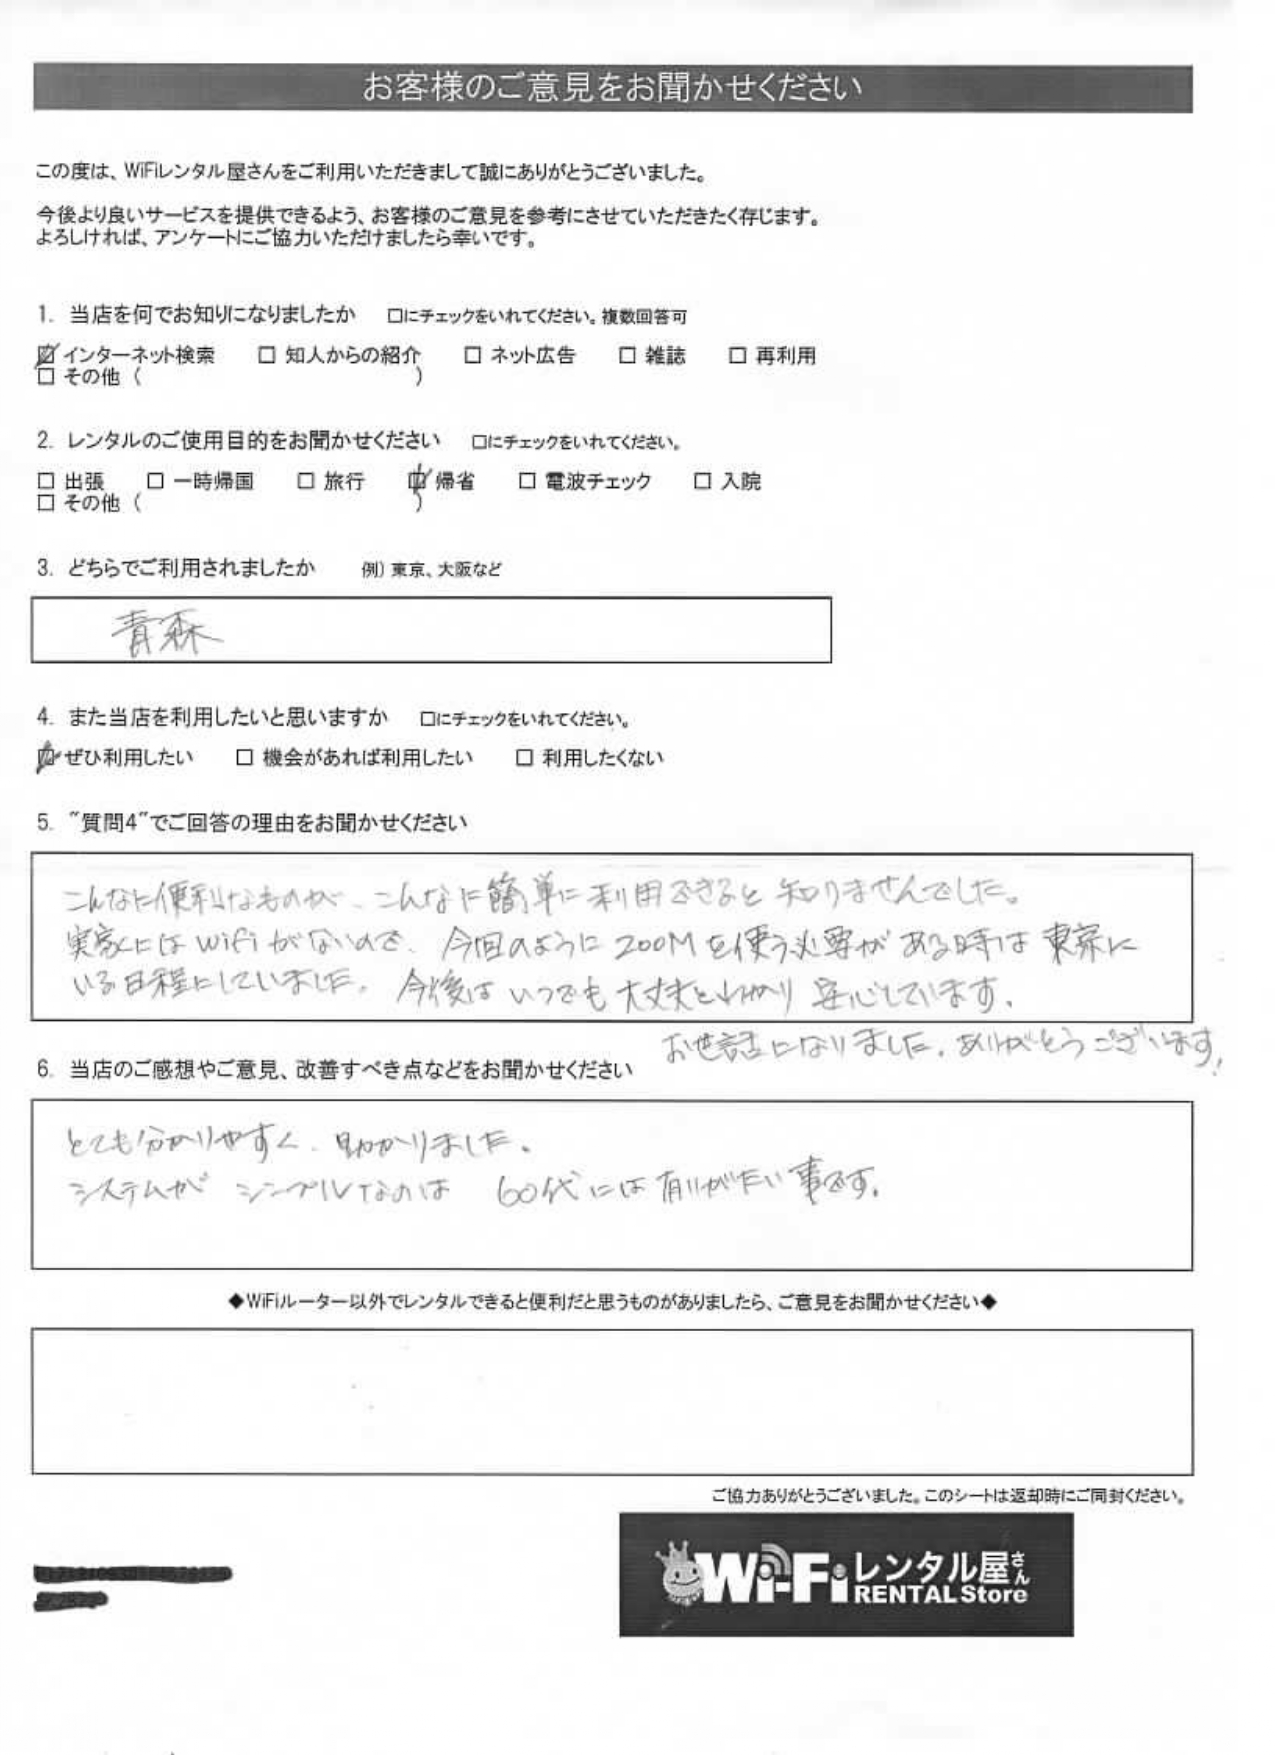 お客様のご意見をお聞かせください
この度は、WiFiレンタル屋さんをご利用いただきまして誠にありがとうございました。
今後より良いサービスを提供できるよう、お客様のご意見を参考にさせていただきたく存じます。
よろしければ、アンケートにご協力いただけましたら幸いです。
1. 当店を何でお知りになりましたか □にチェックをいれてください。複数回答可
☑ インターネット検索 □ 知人からの紹介 □ ネット広告 □ 雑誌 □ 再利用
□ その他 ( )
2. レンタルのご使用目的をお聞かせください □にチェックをいれてください。
□ 出張 □ 一時帰国 □ 旅行 ☑ 帰省 □ 電波チェック □ 入院
□ その他 ( )
3. どちらでご利用されましたか 例) 東京、大阪など
青森
4. また当店を利用したいと思いますか □にチェックをいれてください。
☑ ぜひ利用したい □ 機会があれば利用したい □ 利用したくない
5. ″質問4″でご回答の理由をお聞かせください
こんなに便利なものが、こんなに簡単に利用できると知りませんでした。
実家にはWiFiがないので、今回のように200Mを使う必要がある時は東京に
いる日程にしていました。今後はいつでも大丈夫とわかり安心しています。
お世話になりました。ありがとうございます!
6. 当店のご感想やご意見、改善すべき点などをお聞かせください
とても分かりやすく、助かりました。
システムがシンプルなのは 60代には有りがたい事です。
◆WiFiルーター以外でレンタルできると便利だと思うものがありましたら、ご意見をお聞かせください◆
ご協力ありがとうございました。このシートは返却時にご同封ください。
Wi-Fiレンタル屋さん
RENTAL Store